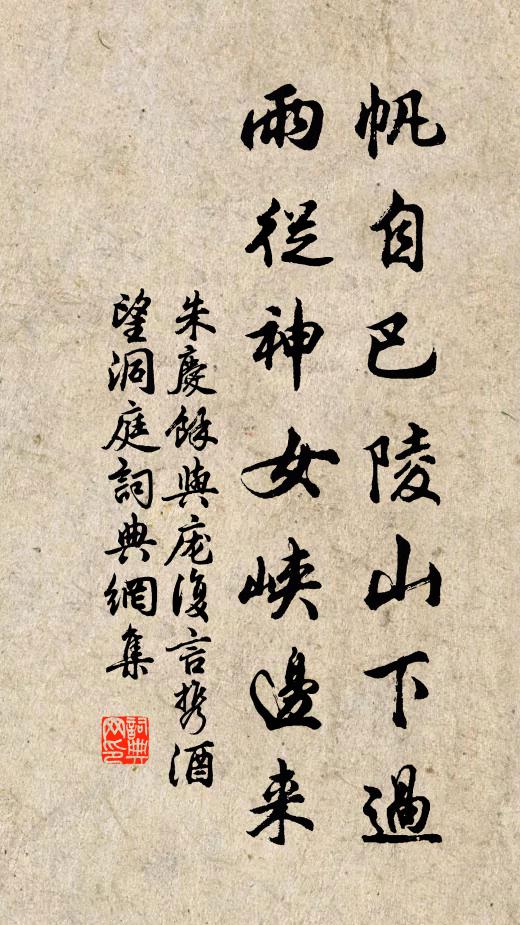 帆自巴陵山下過
雨從神女峽邊来
朱慶餘與龐復言携酒
望洞庭詞典網集
詞典网印